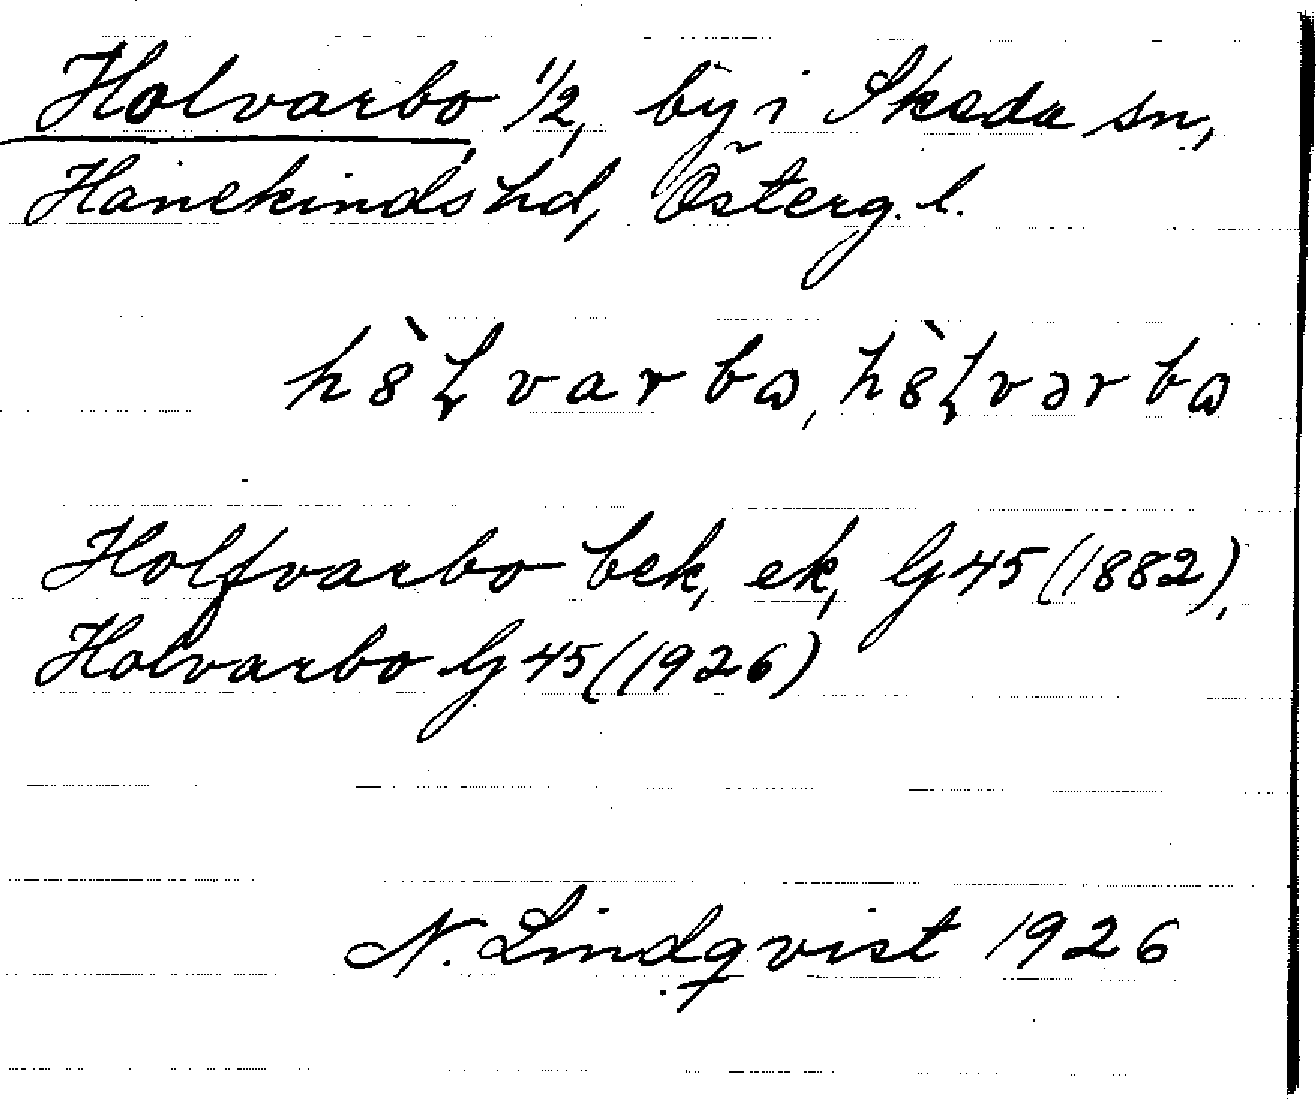 Holvarbo, 1/2, by i Skeda sn,
Hanekinds hd, Österg. l.
Holfvarbo bek, ek, G 45 (1882),
Holvarbo G 45 (1926)
N. Lindqvist 1926